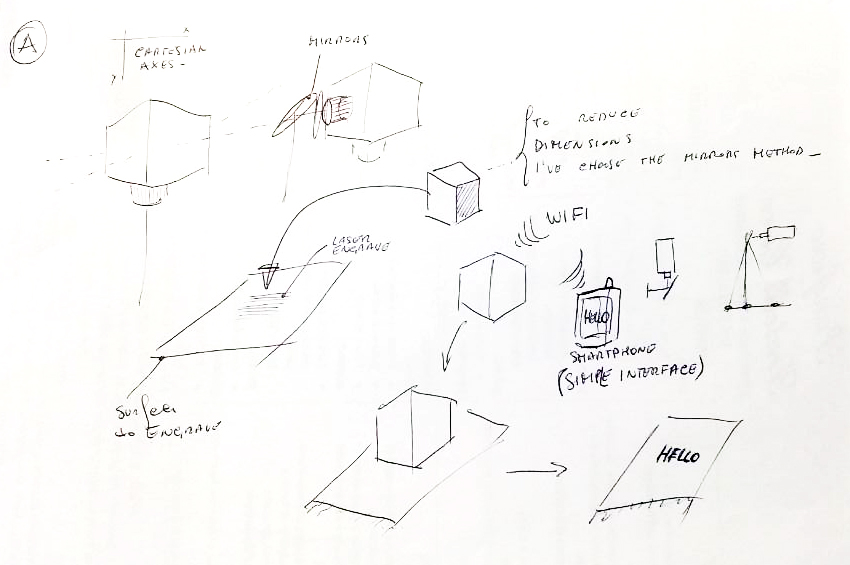 A
x
CARTESIAN
AXES-
y
MIRRORS
TO REDUCE
DIMENSIONS
I'VE CHOSE THE MIRRORS METHOD_
WIFI
LASER
ENGRAVE
HELLO
SMARTPHONE
(SIMPLE INTERFACE)
to ENGRAVE
HELLO